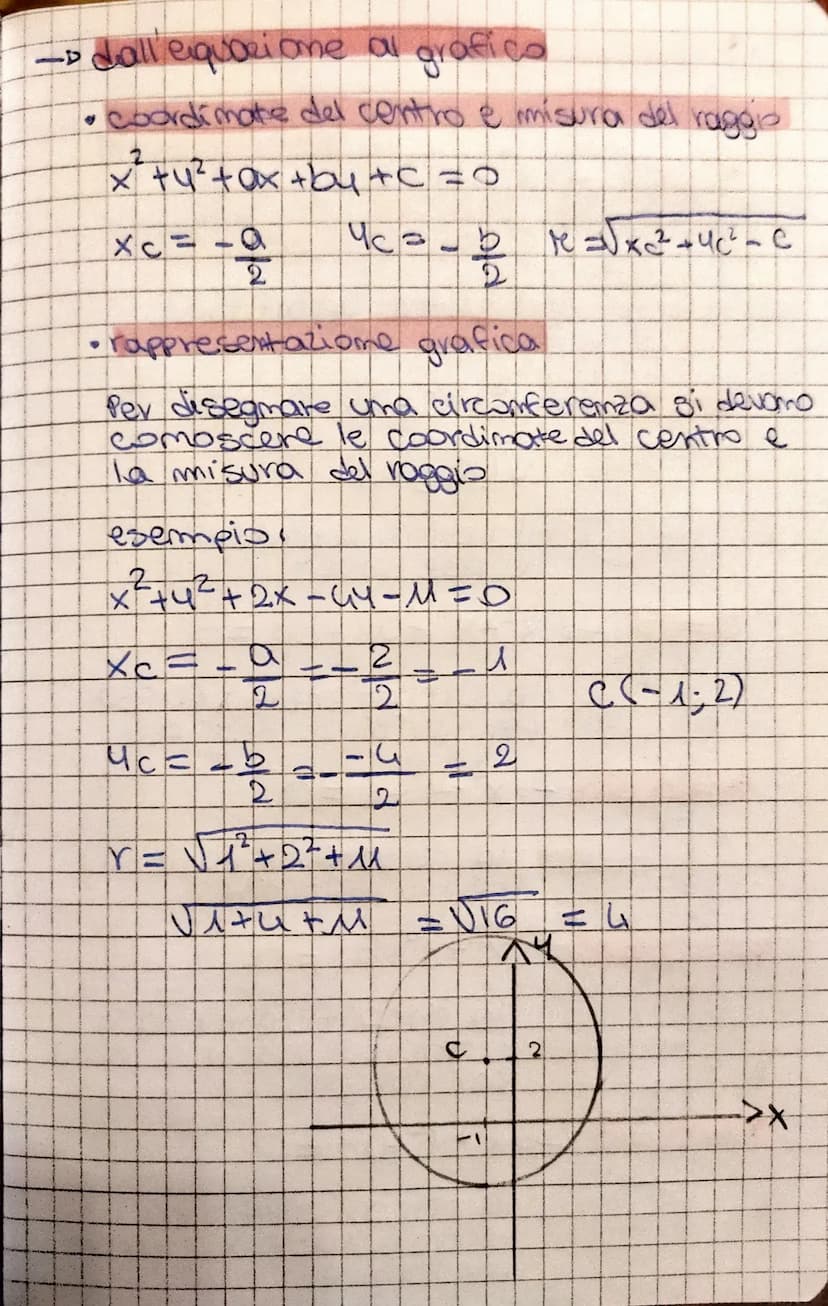 → dall'equazione al grafico
• coordinate del centro e misura del raggio
x²+y²+ax+by+c=0
xc = -a/2 yc = -b/2 r = √(xc²+yc²-c)
• rappresentazione grafica
Per disegnare una circonferenza si devono
conoscere le coordinate del centro e
la misura del raggio
esempio:
x²+y²+2x-4y-11=0
xc = -a/2 = -2/2 = -1
C(-1;2)
yc = -b/2 = - -4/2 = 2
r = √(1²+2²+11)
√(1+4+11) = √16 = 4
y
C 2
x
-1